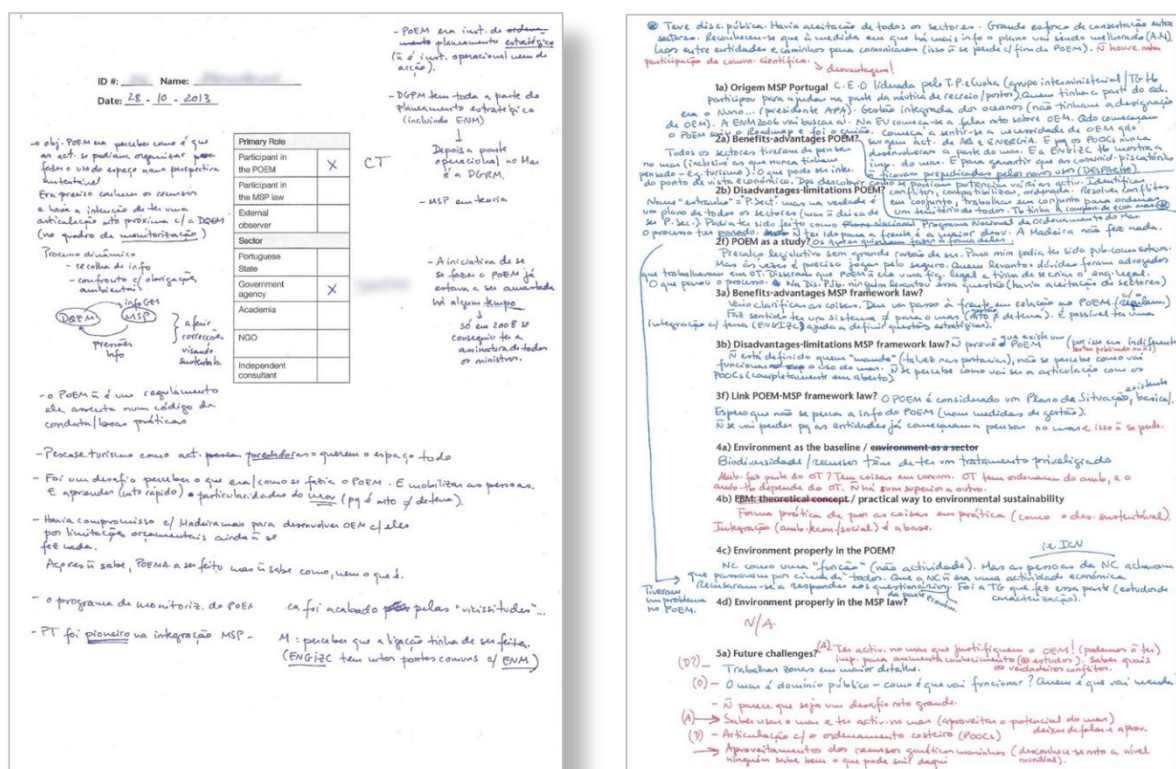 - POEM era inst. de ordenamento planeamento estratégico
(ñ é inst. operacional nem de
acção).
ID #: Name:
Date: 28 - 10 - 2013
- DGPM tem toda a parte do
planeamento estratégico
(incluindo ENM)
↓
Depois a parte
operacional no Mar
é a DGRM.
- MSP em teoria
- A iniciativa de se
se fazer o POEM já
estava a ser
há algum tempo
↓
só em 2008 se
conseguiu ter a
assinatura de todos
os ministros.
→ obj. POEM era perceber como é q
as act. se podiam organizar para
fazer o uso do espaço numa perspectiva
sustentável
Era preciso conhecer os recursos
e havia a intenção de ter uma
articulação mto próxima c/ a DQEM
(no quadro da monitorização)
Processo dinâmico
- recolha de info
- confronto c/ obrigações
ambientais
info GES
DQEM MSP
pressões
Info
aferir
correcções
visando
sustentab.
Primary Role
Participant in
the POEM X CT
Participant in
the MSP law
External
observer
Sector
Portuguese
State
Government
agency X
Academia
NGO
Independent
consultant
- o POEM ñ é um regulamento
ele assenta num código de
conduta/boas práticas
- Pesca e turismo como act. predadoras querem o espaço todo
- Foi um desafio perceber o que era/como se fazia o POEM. E mobilitar as pessoas.
E aprender (mto rápido) particularidades do mar (pq é mto ≠ de terra).
- Havia compromisso c/ Madeira mas para desenvolver OEM c/ eles
por limitações orçamentais ainda ñ se
fez nada.
Açores ñ sabe, POEMA a ser feito mas ñ sabe como, nem o que é.
- o programa de monitoriz. do POEM
ca foi acabado pelas "vicissitudes"...
- PT foi pioneiro na integração MSP -
M: perceber que a ligação tinha de ser feita.
(ENGIZC tem mtos pontos comuns c/ ENM)
Teve disc. pública. Havia aceitação de todos os sectores. Grande esforço de concertação entre
sectores. Reconheceu-se que à medida em que há mais info o plano vai sendo melhorado (A.M.)
Laços entre entidades e caminhos para comunicarem (isso ñ se perde c/ fim do POEM). Ñ houve mta
participação da comun. científica. → desvantagem!
1a) Origem MSP Portugal C.E.O liderada pelo T.P. e Cunha (grupo interministerial/TG tb
participou para ajudar na parte da náutica de recreio/portos). Quem tinha a parte do
era o Nuno... (presidente APA). Gestão integrada dos oceanos (não tinham a designação
de OEM). A ENM2006 vai buscar aí. Na EU começa-se a falar mto sobre OEM. Qdo começam
o POEM saiu o Roadmap e foi o guião. Começa a sentir-se a necessidade de OEM qdo
2a) Benefits-advantages POEM? surgem act. de Aq e ENERGIA. E pq os POOCs nunca
Todos os sectores tiveram de pensar desenvolveram a parte do mar. E a ENGIZC tb mostra a
no mar (inclusivé as que nunca tinham imp. do mar. E para garantir que as comunid. piscatórias
pensado - e.g. turismo). O que pode ser inter. ñ ficavam prejudicadas pelos novos usos (DESPACHO).
do ponto de vista económico.
2b) Disadvantages-limitations POEM? conflitos, compatibilizar, ordenado. Resolver conflitos
Nome "estranho" = P. Sect. mas na verdade é em conjunto, trabalhar em conjunto para ordenar
um plano de todos os sectores (mas ñ deixa de um território de todos.
ser P. sec.) Podia ter sido feito como Programa Nacional de Ordenamento do Mar
O processo ter parado. Ñ ter ido para a frente é a maior desv. A Madeira não fez nada.
2f) POEM as a study?
Precalço legislativo sem grande razão de ser. Para mim podia ter sido pub. como estava.
Mas às vezes é preciso jogar pelo seguro. Quem levantou dúvidas foram advogados
que trabalhavam em OT. Disseram que POEM ñ era uma fig. legal e tinha de se criar o enq. legal.
O que parou o processo. Na Dis. Pub. ninguém levantou essa questão (havia aceitação de sectores)
3a) Benefits-advantages MSP framework law?
Veio clarificar as coisas. Deu um passo à frente em relação ao POEM
Faz sentido ter um sistema ≠ para o mar (mto ≠ de terra). É possível ter uma
integração c/ terra (ENGIZC) ajuda a definir questões estratégicas).
3b) Disadvantages-limitations MSP framework law? Ñ prova que existe um POEM
Ñ está definido quem "manda" (talvez nas portarias), não se percebe como vai
funcionar o uso do mar. Ñ se percebe como vai ser a articulação com os
POOCs (completamente em aberto)
3f) Link POEM-MSP framework law? O POEM é considerado um Plano da Situação existente, basical
Espero que não se perca a info do POEM (nem medidas de gestão).
Ñ se vai perder pq as entidades já começaram a pensar no mar e isso ñ se perde.
4a) Environment as the baseline / environment as a sector
Biodiversidade / recursos têm de ter um tratamento priveligiado
Amb. faz parte do OT? Tem coisas em comum. OT tem ordenam do amb, e o
amb. tb depende do OT. Ñ há sum superior a outro.
4b) EBM: theoretical concept / practical way to environmental sustainability
Forma prática de por as coisas em prática (como o des. sustentável)
Integração (amb./econ./social) é a base.
4c) Environment properly in the POEM? i.e. ICN
NC como uma "função" (não actividade). Mas as pessoas da NC achavam
que passavam por cima de "todos. Que a NC ñ era uma actividade económica
Recusaram-se a responder aos questionários. Foi a TG que fez essa parte (estudo de
caracterização).
Tiveram
um problema
no POEM.
4d) Environment properly in the MSP law?
N/A
5a) Future challenges? (A) Ter activ. no mar que justifiquem o OEM! (podemos ñ ter)
imp. para aumentar conhecimento (estudos). Saber quais
os verdadeiros conflitos.
(D?) - Trabalhar zonas em maior detalhe.
(O) - O mar é domínio público - como é que vai funcionar? Quem é que vai mandar
- Ñ parece que seja um desafio mto grande.
(A) → Saber usar o mar e ter activ. no mar (aproveitar o potencial do mar)
deixar de falar e aprov.
(D) - Articulação c/ o ordenamento costeiro (POOCs)
→ Aproveitamentos dos recursos genéticos marinhos (desconhece-se mto a nível
ninguém sabe bem o que pode sair daqui mundial).